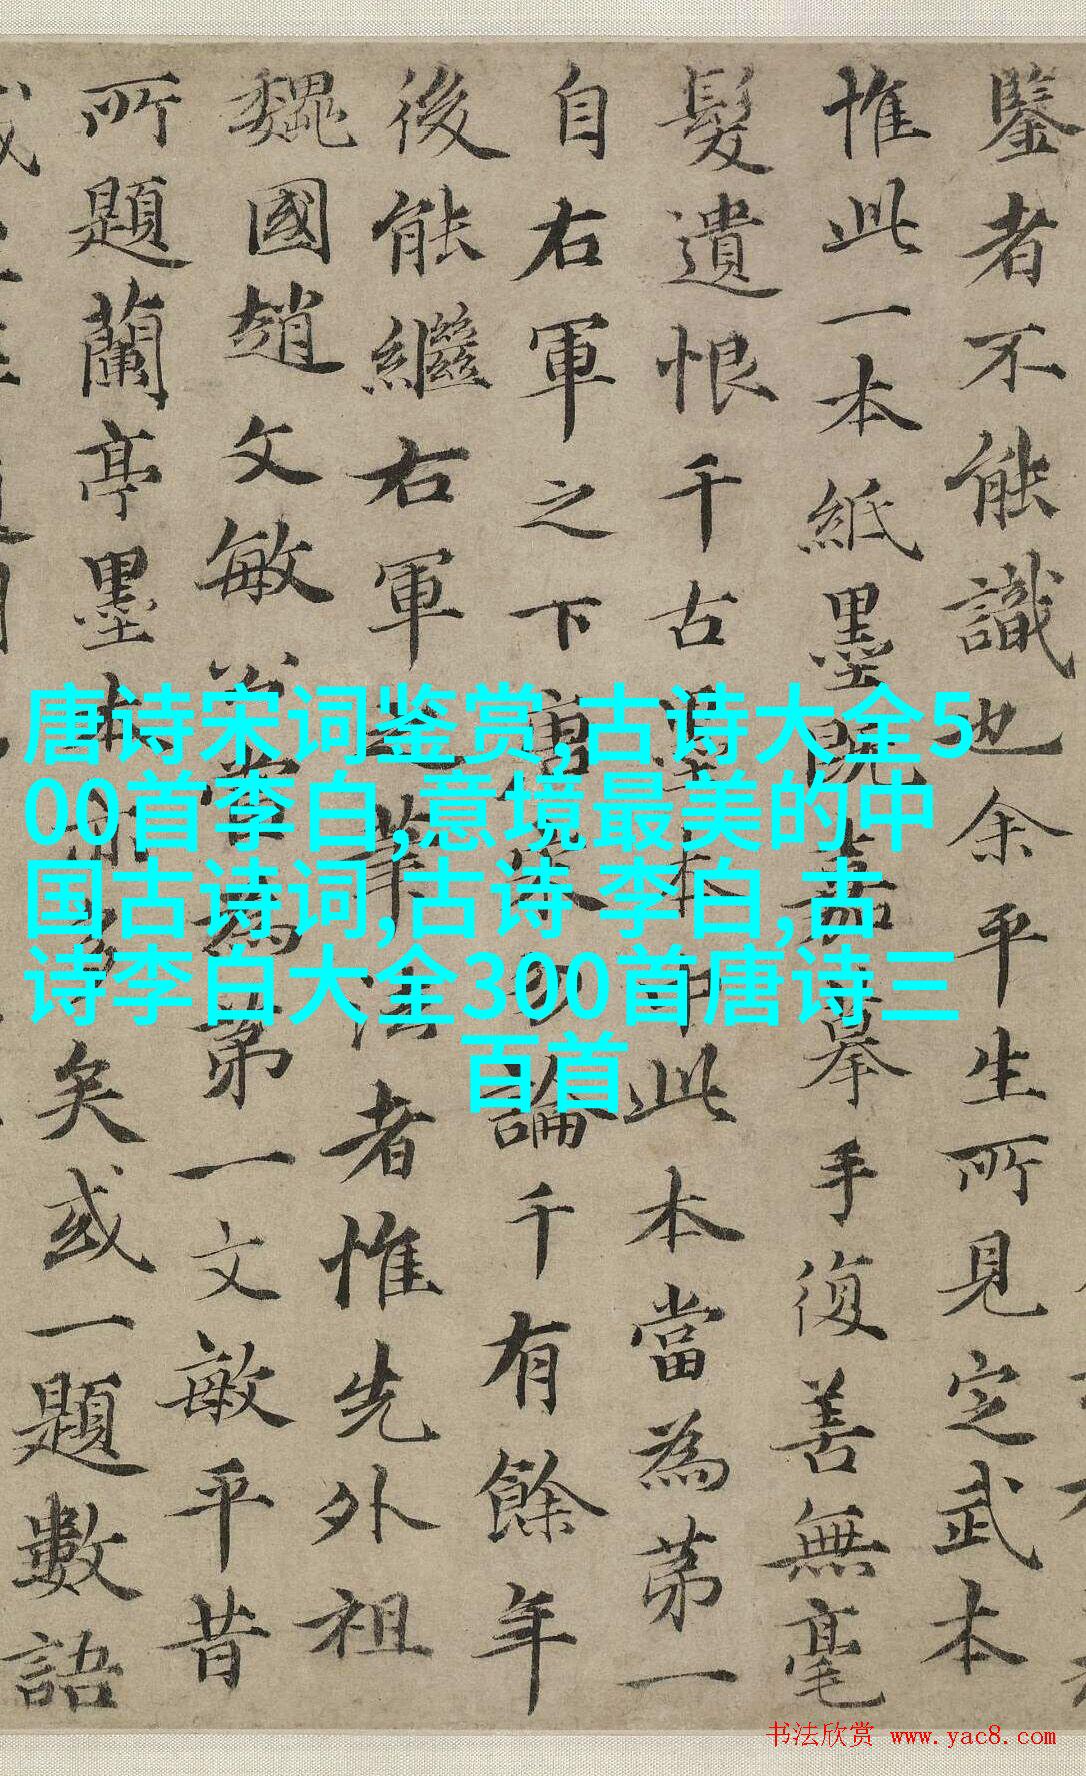 鑒者不能識也余平生所見定武本
惟此一本紙墨既嘉摹手復善無毫
髮遺恨千古墨本中此本當為苐一
自右軍之下唐宋勿論千有餘年
後能繼右軍之筆法者惟先外祖
魏國趙文敏公當為苐一文敏平昔
所題蘭亭墨本亦多矣或一題數語
唐诗宋词鉴赏,古诗大全5
00首李白,意境最美的中
国古诗词,古诗 李白,古
诗李白大全300首唐诗三
百首
书法欣赏 www.yac8.com